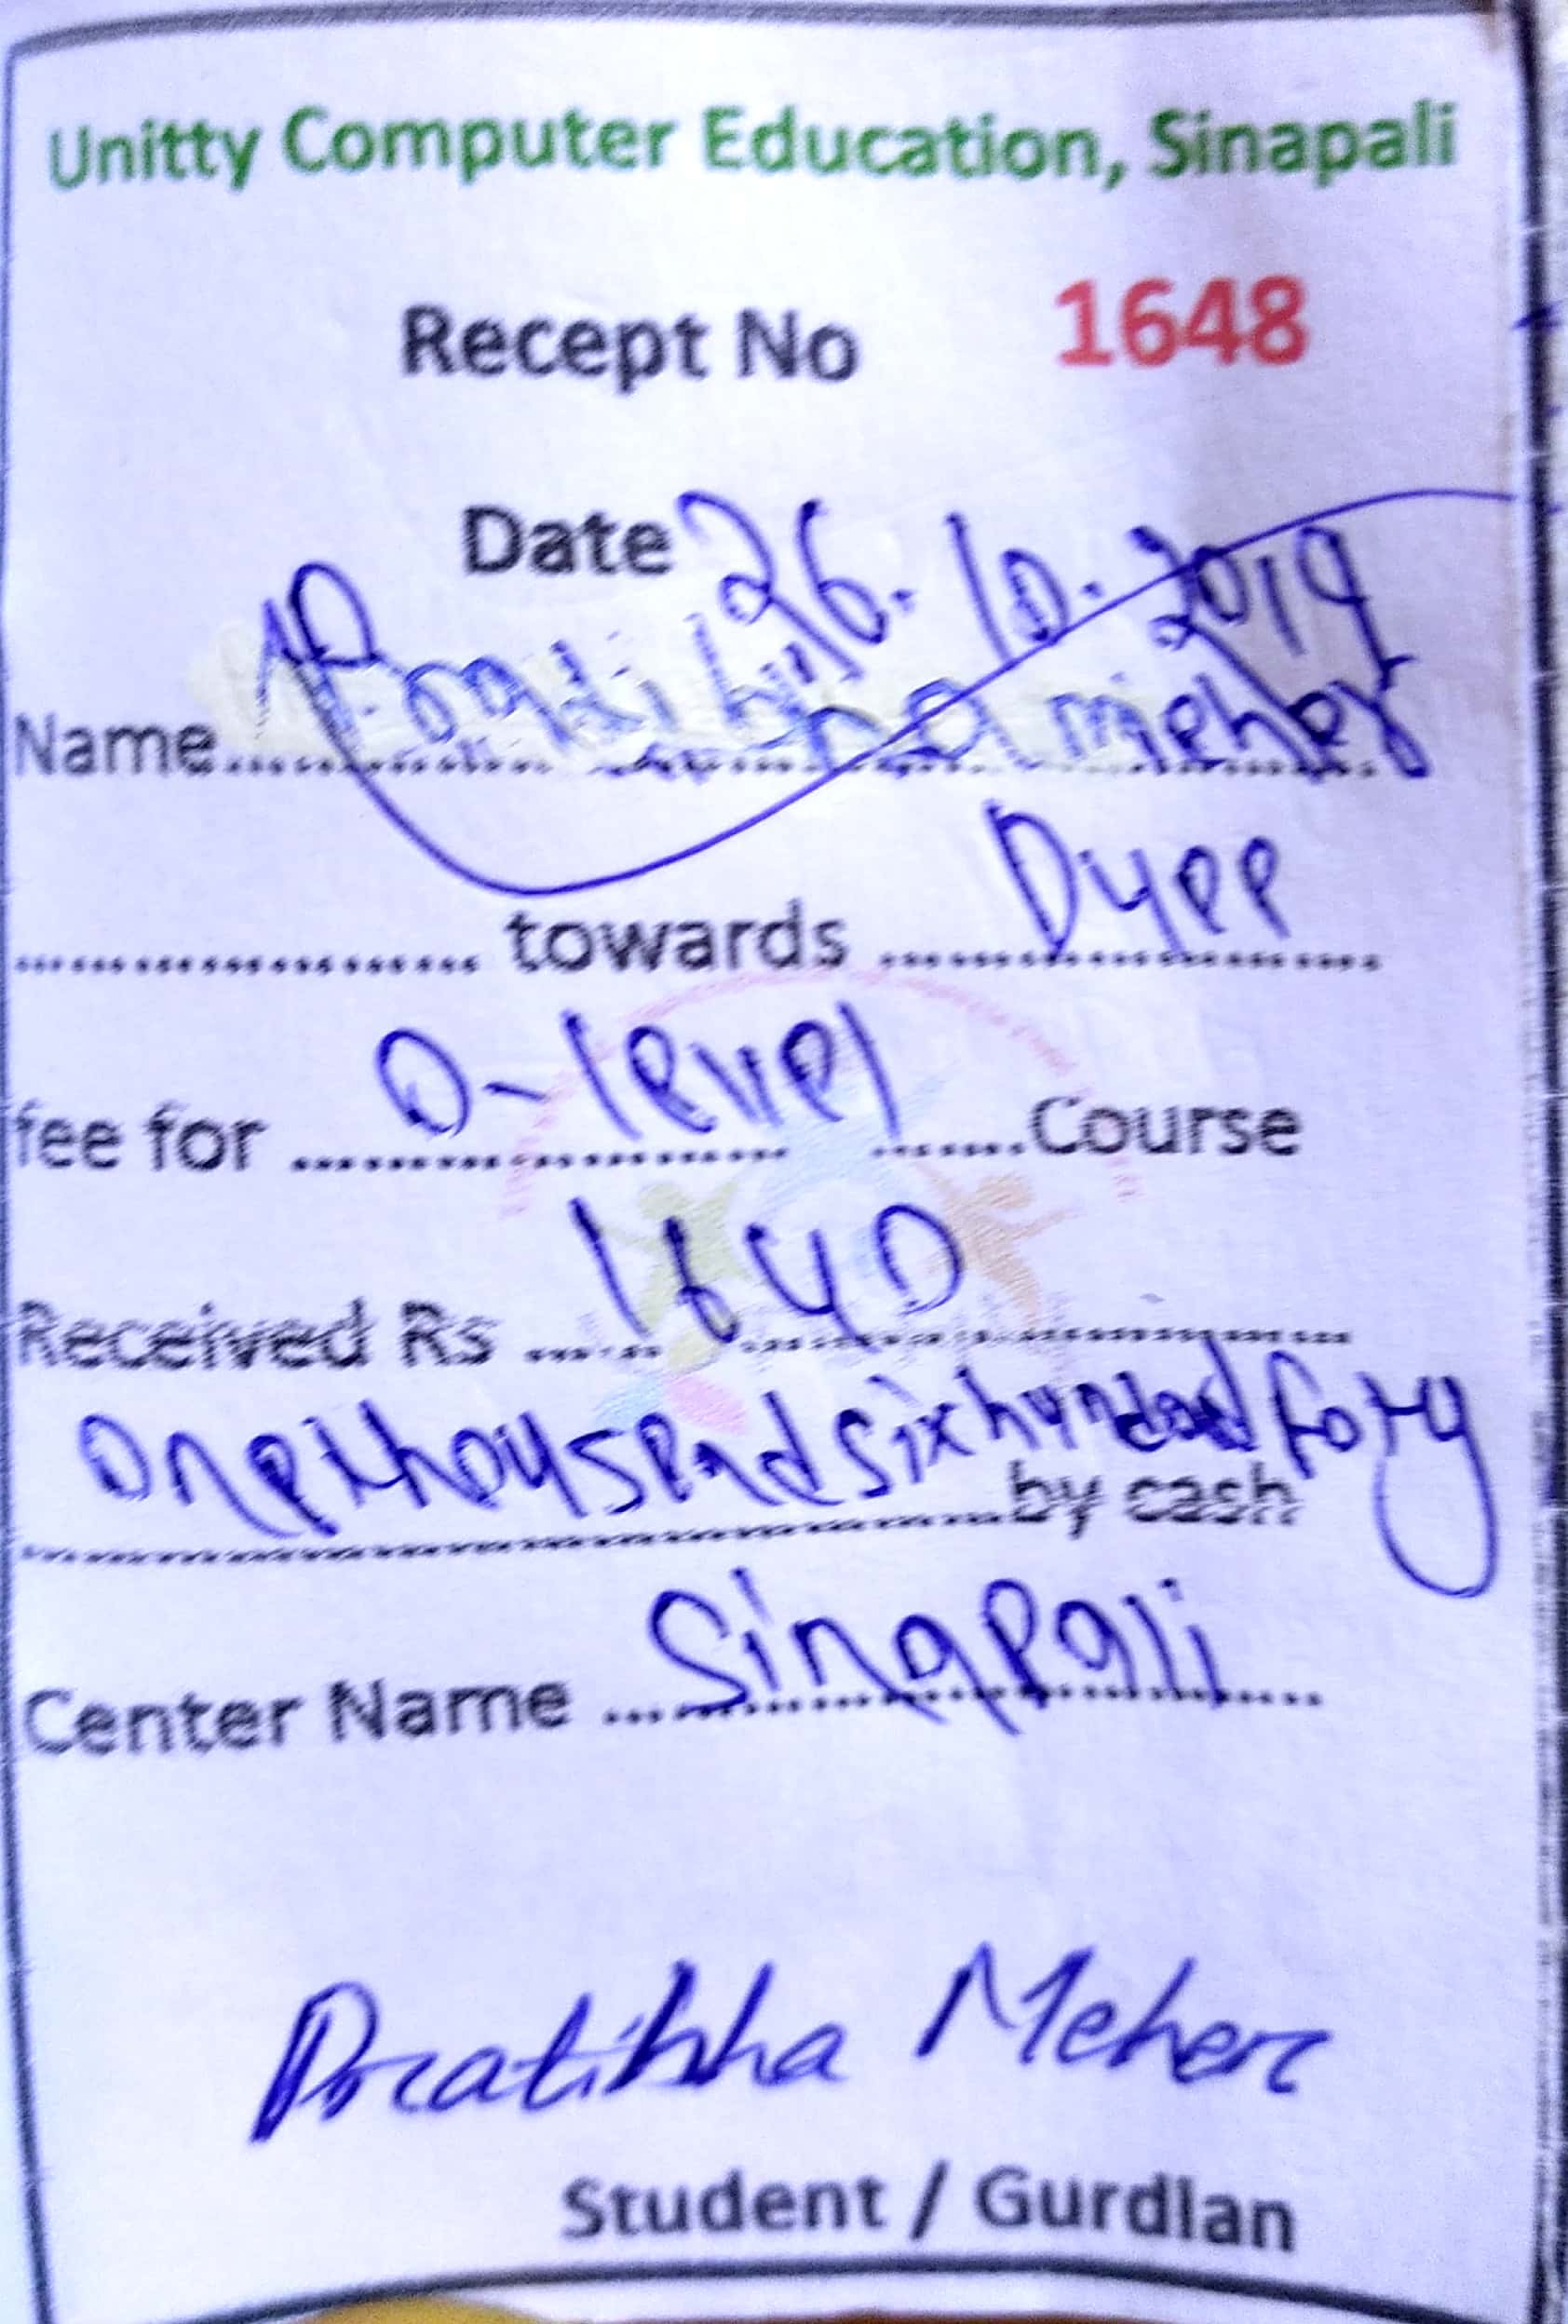 Unitty Computer Education, Sinapali
Recept No 1648
Date 26.10.2019
Name meher
towards Dyee
fee for O-level Course
Received Rs 1640
One thousend six hundred fory
by cash
Center Name Sinapali
Pratibha Meher
Student / Gurdian